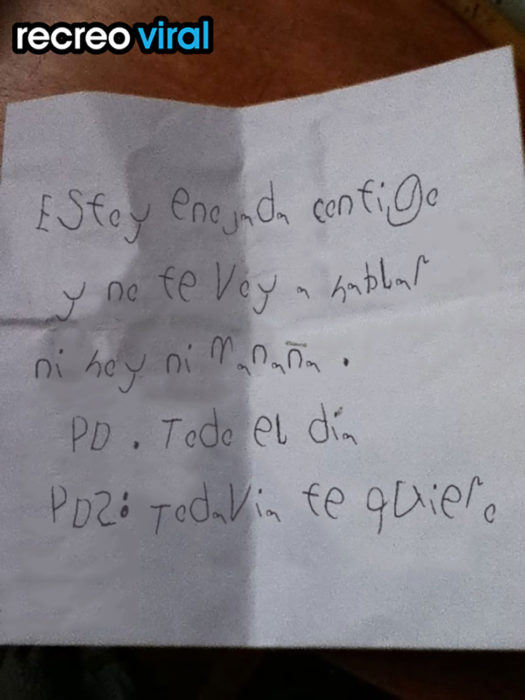 recreo viral
Estoy enojada contigo
y no te voy a hablar
ni hoy ni mañana.
PD. Todo el día
PD2: Todavia te quiero